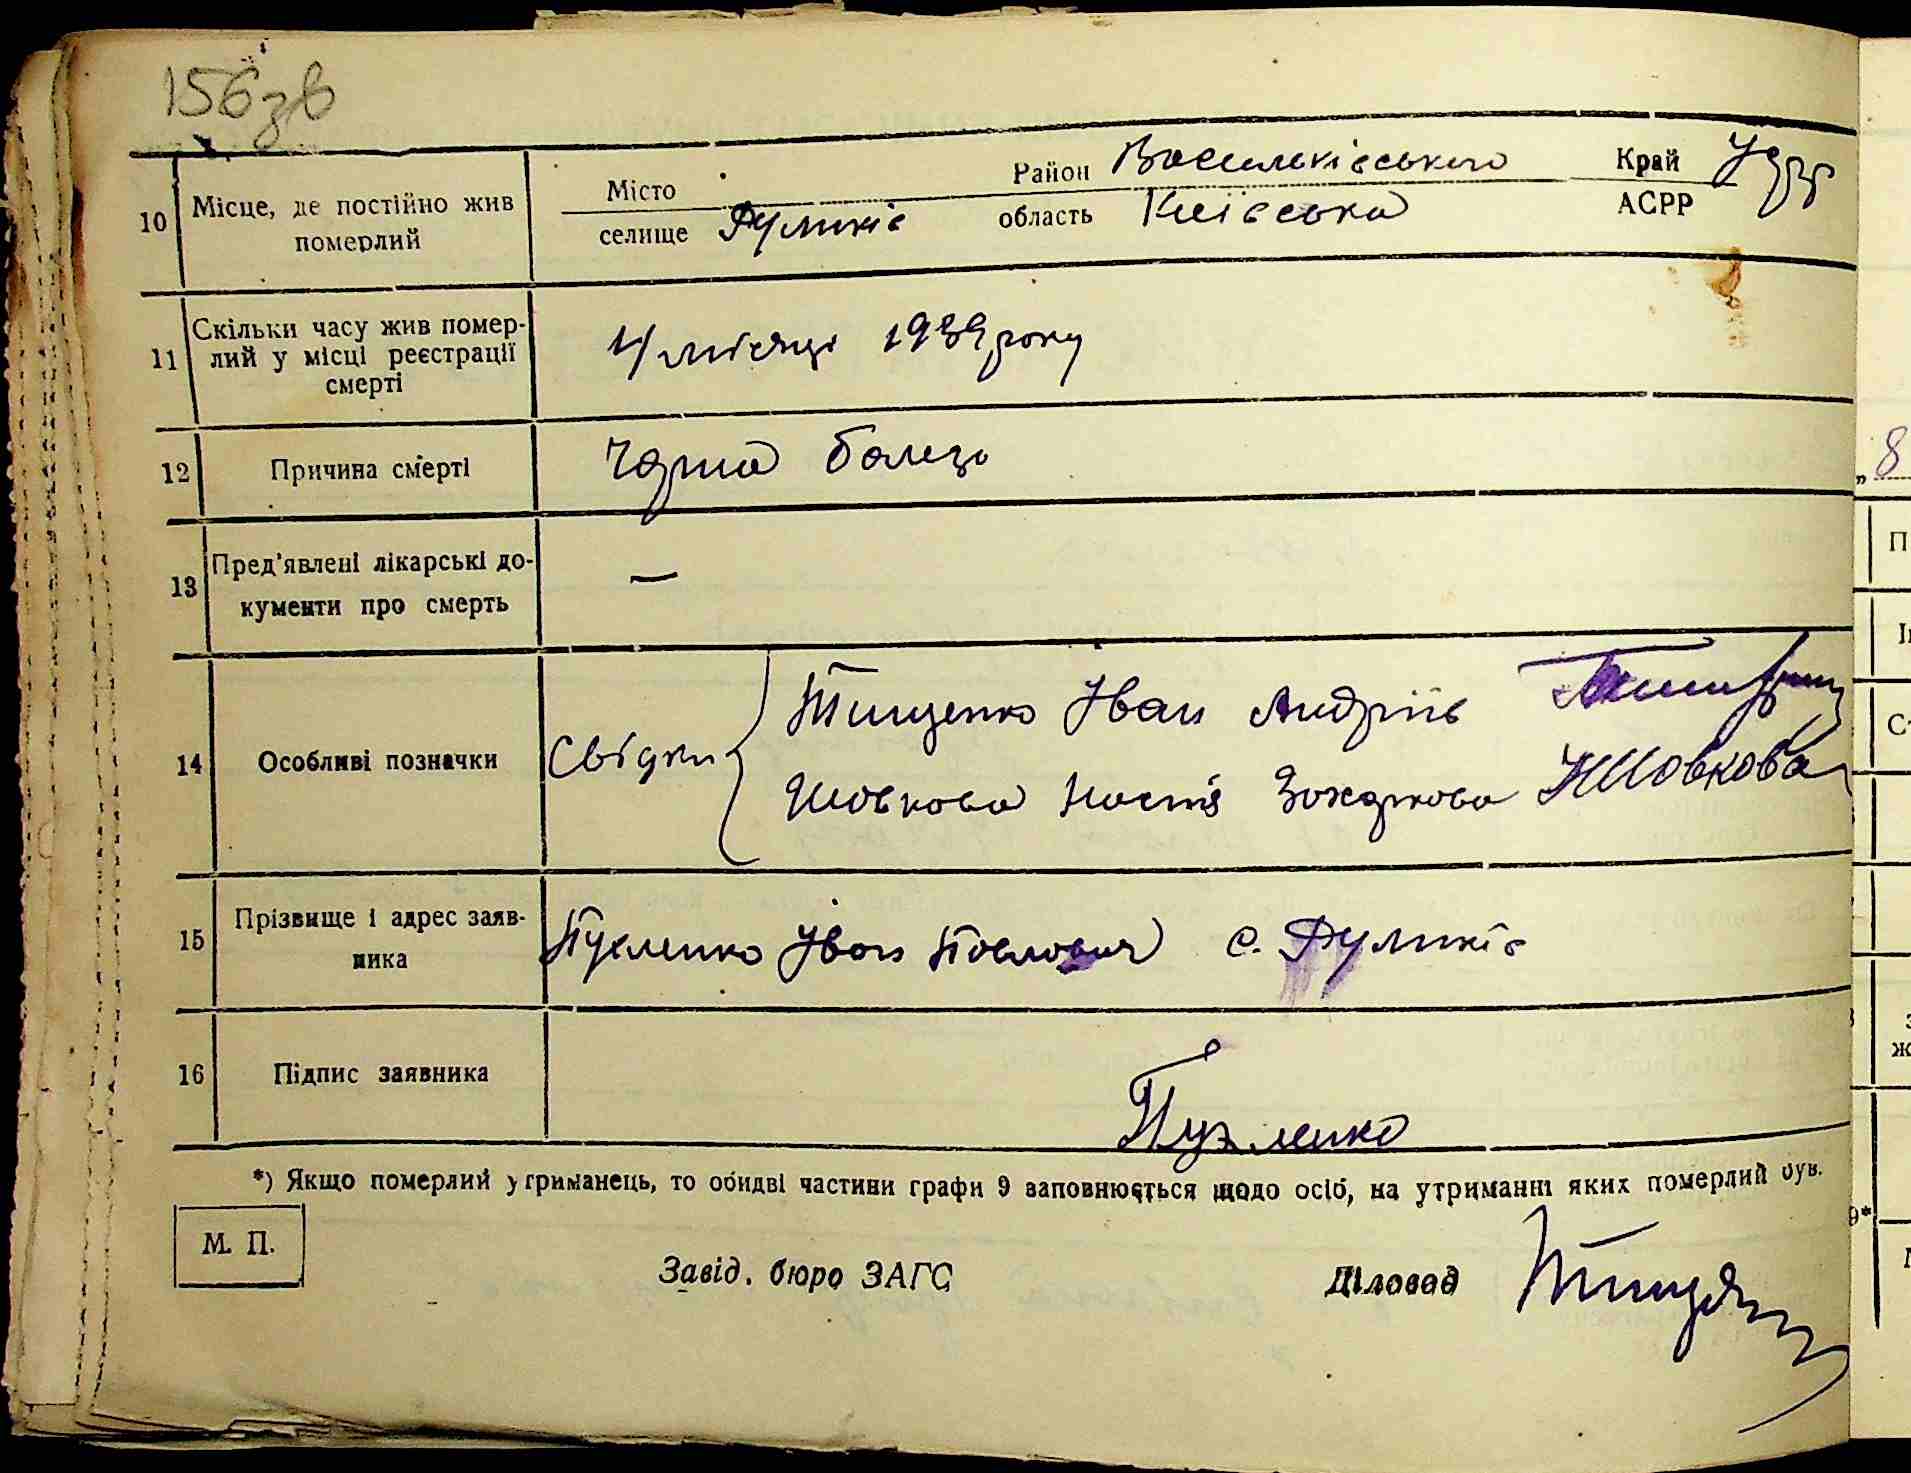 156зв
10 Місце, де постійно жив померлий
Місто
селище Руликів
Район Васильківського
область Київська
Край УРСР
АСРР
11 Скільки часу жив помер-
лий у місці реєстрації
смерті
4 місяці 1939 року
12 Причина смерті
Чорна болезь
13 Пред'явлені лікарські до-
кументи про смерть
—
14 Особливі позначки
Свідки
Тищенко Іван Андріїв
Шовкова Настя Захаркова НШовкова
15 Прізвище і адрес заяв-
ника
Пузленко Іван Павлович с. Руликів
16 Підпис заявника
Пузленко
*) Якщо померлий утриманець, то обидві частини графи 9 заповнюється щодо осіб, на утриманні яких померлий був.
М. П.
Завід. бюро ЗАГС
Діловод
„8
9*